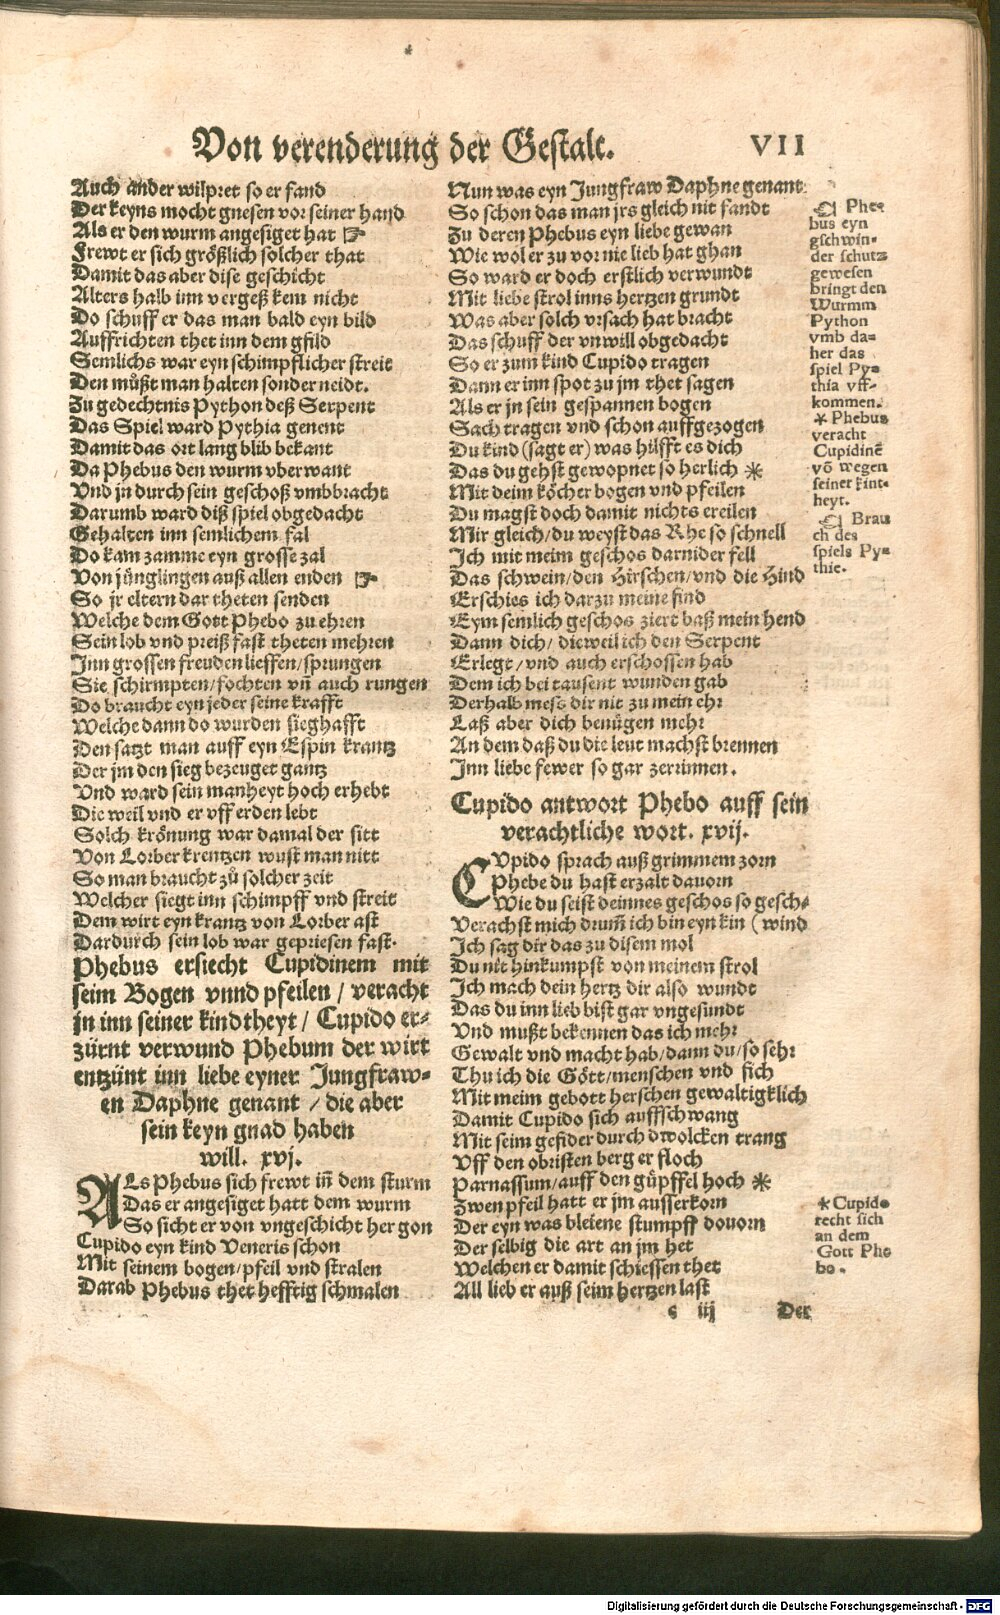 Von verenderung der Gestalt.
VII
Auch ander wilpret so er fand
Der keyns mocht gnesen vor seiner hand
Als er den wurm angesiget hat ☞
Frewt er sich größlich solcher that
Damit das aber dise geschicht
Alters halb inn vergeß kem nicht
Do schuff er das man bald eyn bild
Auffrichten thet inn dem gfild
Semlichs war eyn schimpflicher streit
Den můßt man halten sonder neidt.
Zu gedechtnis Python deß Serpent
Das Spiel ward Pythia genent
Damit das ort lang blib bekant
Da Phebus den wurm vberwant
Vnd jn durch sein geschoß vmbbracht
Darumb ward diß spiel obgedacht
Gehalten inn semlichem fal
Do kam zamme eyn grosse zal
Von jünglingen auß allen enden ☞
So jr eltern dar theten senden
Welche dem Gott Phebo zu ehren
Sein lob vnd preiß fast theten mehren
Inn grossen freuden lieffen/sprungen
Sie schirmpten/fochten vñ auch rungen
Do braucht eyn jeder seine krafft
Welche dann do wurden sieghafft
Den satzt man auff eyn Espin krantz
Der jm den sieg bezeuget gantz
Vnd ward sein manheyt hoch erhebt
Die weil vnd er vff erden lebt
Solch krönung war damal der sitt
Von Lorber krentzen wust man nitt
So man braucht zů solcher zeit
Welcher siegt inn schimpff vnd streit
Dem wirt eyn krantz von Lorber ast
Dardurch sein lob war gepriesen fast.
Phebus ersiecht Cupidinem mit
seim Bogen vnnd pfeilen / veracht
jn inn seiner kindtheyt / Cupido er-
zürnt verwund Phebum der wirt
entzünt inn liebe eyner Jungfraw-
en Daphne genant / die aber
sein keyn gnad haben
will. xvj.
ALs Phebus sich frewt iñ dem sturm
Das er angesiget hatt dem wurm
So sicht er von vngeschicht her gon
Cupido eyn kind Veneris schon
Mit seinem bogen/pfeil vnd stralen
Darab Phebus thet hefftig schmalen
Nun was eyn Jungfraw Daphne genant
So schon das man jrs gleich nit fandt
Zu deren Phebus eyn liebe gewan
Wie wol er zu vor nie lieb hat ghan
So ward er doch erstlich verwundt
Mit liebe strol inns hertzen grundt
Was aber solch vrsach hat bracht
Das schuff der vnwill obgedacht
So er zum kind Cupido tragen
Dann er inn spot zu jm thet sagen
Als er jn sein gespannen bogen
Sach tragen vnd schon auffgezogen
Du kind (sagt er) was hülfft es dich
Das du gehst gewopnet so herlich *
Mit deim köcher bogen vnd pfeilen
Du magst doch damit nichts ereilen
Mir gleich/du weyst das Rhe so schnell
Ich mit meim geschos darnider fell
Das schwein/den Hirschen/vnd die Hind
Erschies ich darzu meine find
Eym semlich geschos ziert baß mein hend
Dann dich/ dieweil ich den Serpent
Erlegt/vnd auch erschossen hab
Dem ich bei tausent wunden gab
Derhalb mess dir nit zu mein ehr
Laß aber dich benügen mehr
An dem daß du die leut machst brennen
Inn liebe fewer so gar zerrinnen.
Cupido antwort Phebo auff sein
verachtliche wort. xvij.
CVpido sprach auß grimmem zorn
Phebe du hast erzalt dauorn
Wie du seist deinnes geschos so gesch-
Verachst mich drum̃ ich bin eyn kin (wind
Ich sag dir das zu disem mol
Du nit hinkumpst von meinem strol
Ich mach dein hertz dir also wundt
Das du inn lieb bist gar vngesundt
Vnd mußt bekennen das ich mehr
Gewalt vnd macht hab/dann du/so sehr
Thu ich die Gött/menschen vnd sich
Mit meim gebott herschen gewaltigklich
Damit Cupido sich auffschwang
Mit seim gefider durch dwolcken trang
Vff den obristen berg er floch
Parnassum/auff den güpffel hoch *
Zwen pfeil hatt er jm ausserkorn
Der eyn was bleiene stumpff douorn
Der selbig die art an jm het
Welchen er damit schiessen thet
All lieb er auß seim hertzen last
c iij
Der
☜ Phe-
bus eyn
gschwin-
der schutz
gewesen
bringt den
Wurmm
Python
vmb da-
her das
spiel Py-
thia vff-
kommen.
* Phebus
veracht
Cupidinē
vō wegen
seiner kint-
heyt.
☜ Brau
ch des
spiels Py-
thie.
* Cupido
recht sich
an dem
Gott Phe
bo.
Digitalisierung gefördert durch die Deutsche Forschungsgemeinschaft - DFG